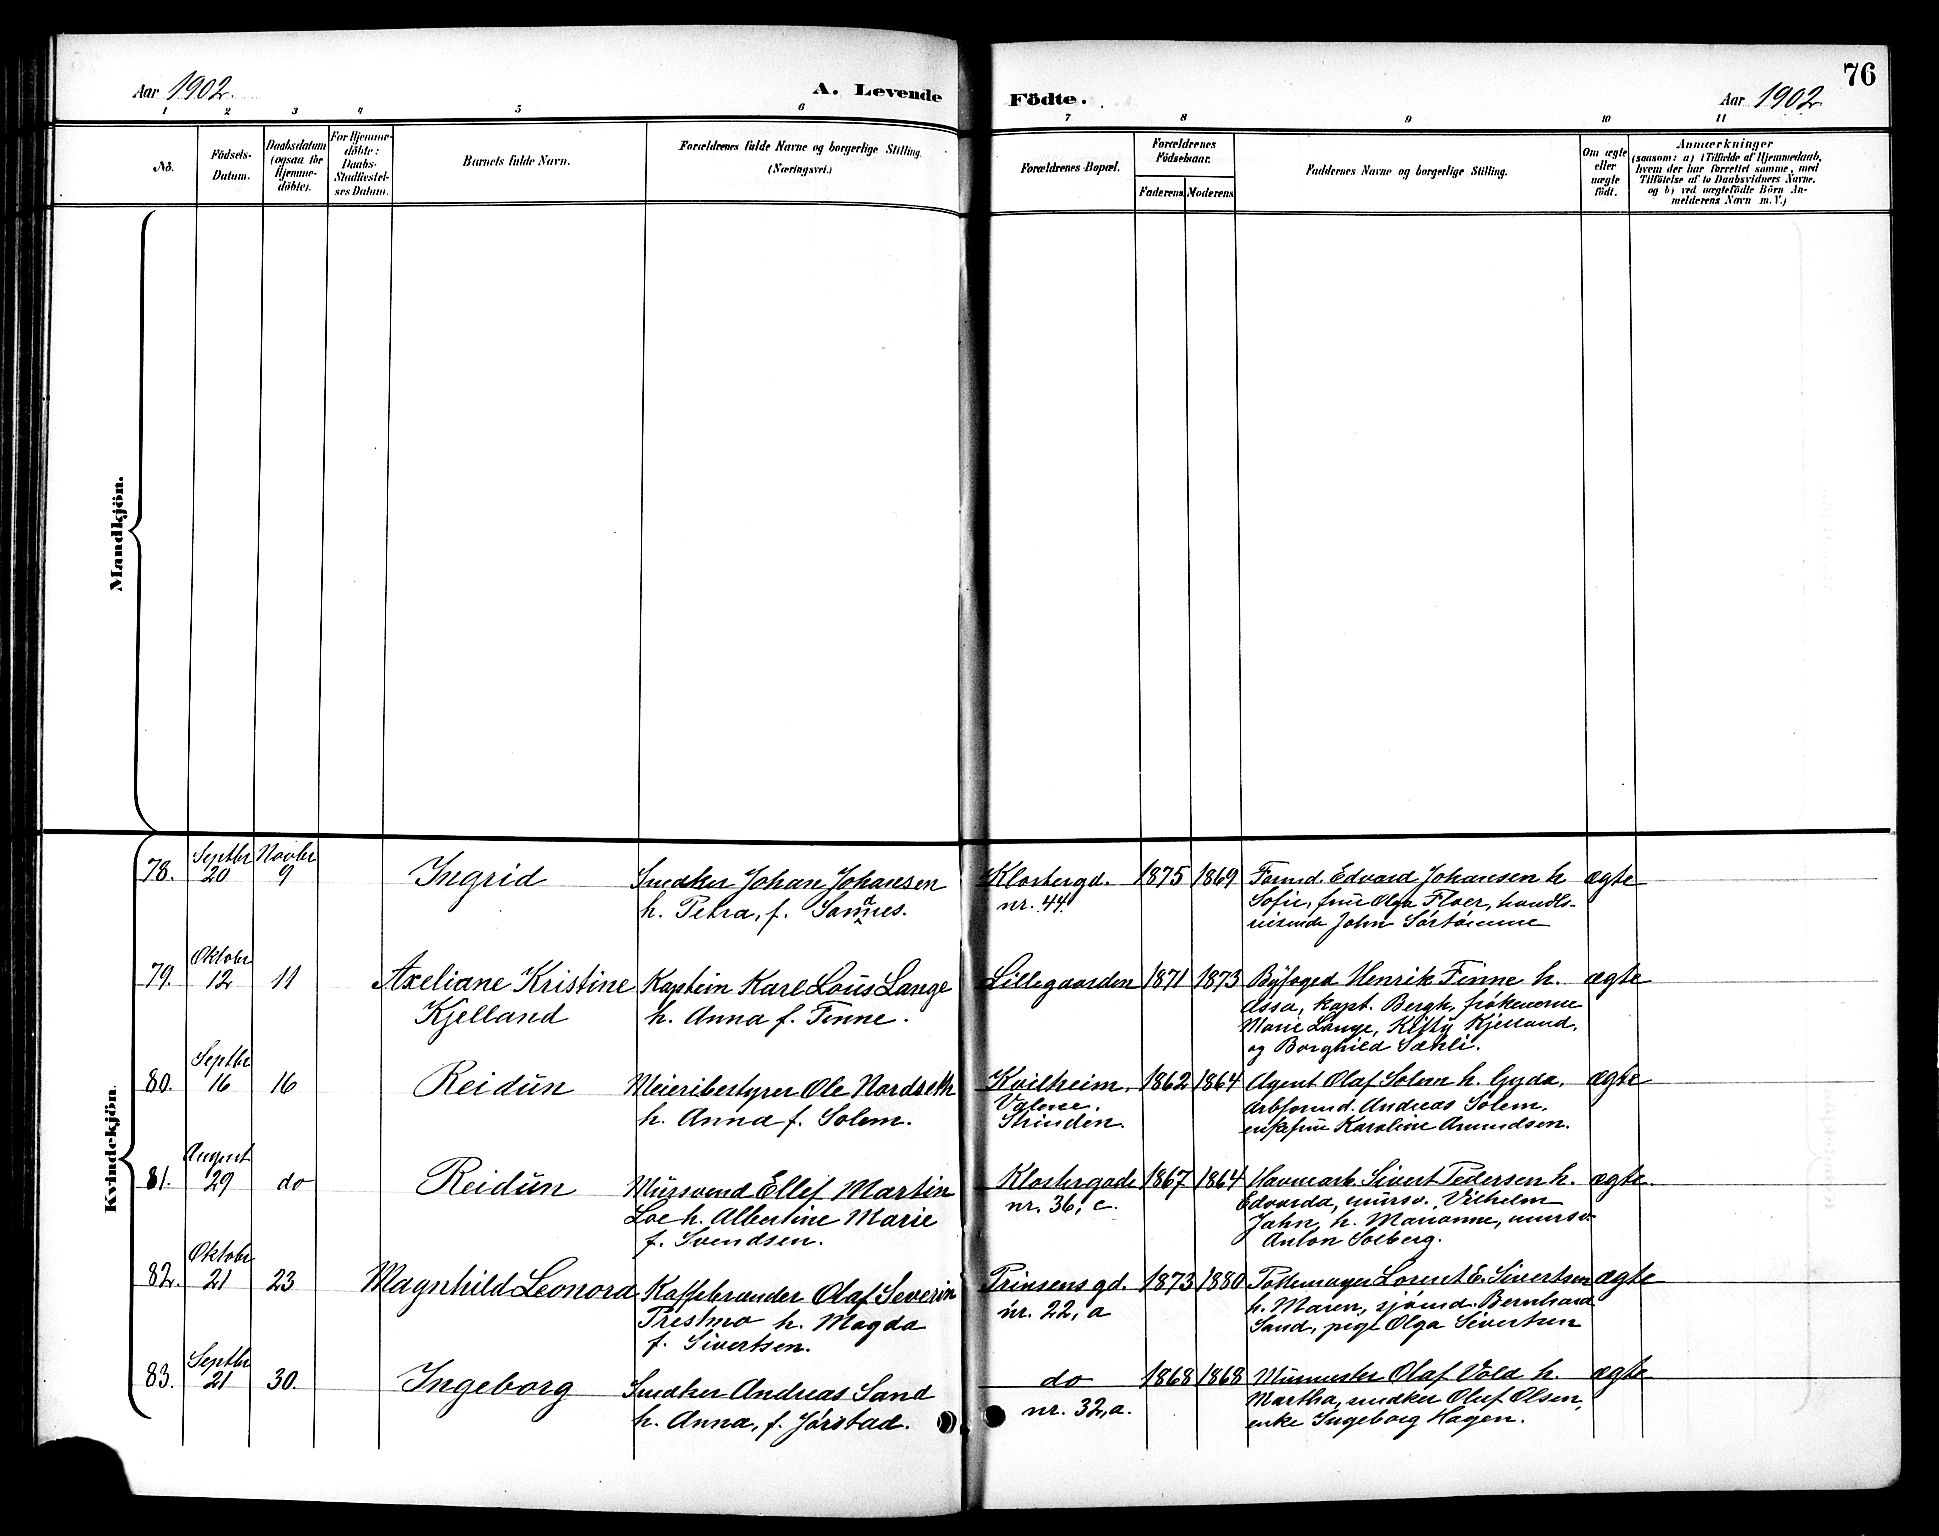 76
Aar 1902. A. Levende Födte. Aar 1902.
1 2 3 4 5 6 7 8 9 10 11
No.
Födsels-
Datum.
Daabsdatum
(ogsaa for
Hjemme-
döbte).
For Hjemme-
döbte:
Daabs-
Stadfæstel-
ses Datum.
Barnets fulde Navn.
Forældrenes fulde Navne og borgerlige Stilling.
(Næringsvei.)
Forældrenes Bopæl.
Forældrenes
Födselsaar.
Faderens Moderens
Faddernes Navne og borgerlige Stilling.
Om ægte
eller
uægte
födt.
Anmærkninger
(saasom: a) i Tilfælde af Hjemmedaab,
hvem der har forrettet samme, med
Tilföielse af to Daabsvidners Navne,
og b) ved uægtefödte Börn An-
melderens Navn m. V.)
Mandkjön.
Kvindekjön
78. Septbr 20 Novbr 9 Ingrid
Snedker Johan Johansen
h. Petra, f. Sannes.
Klostergd.
nr. 44.
1875 1869
Formd. Edvard Johansen h
Sofie, frue Olga Floer, handls-
reisende John Sörtömme
ægte
79. Oktober 12 11 Axeliane Kristine
Kjelland
Kaptein Karl Louis Lange
h. Anna f. Finne.
Lillegaarden 1871 1873
Byfoged Henrik Finne h.
Assa, kapt. Bergh, frökenerne
Marie Lange, Kitty Kjelland,
og Borghild Sækli.
ægte
80. Septbr 16 16 Reidun
Meieribestyrer Ole Nordseth
h. Anna f. Solem.
Kvilheim,
Valene,
Strinden.
1862 1864
Agent Olaf Solem h. Gyda,
Arbformd. Andreas Solem,
enkefrue Karoline Amundsen.
ægte
81. August 29 do Reidun
Mursvend Ellef Martin
Loe h. Albertine Marie
f. Svendsen.
Klostergade
nr. 36, c.
1867 1864
Havnearb. Sivert Pedersen h.
Edvarda, mursv. Vilhelm
Jahn, h. Marianne, mursv.
Anton Solberg.
ægte.
82. Oktober 21 23 Magnhild Leonora
Kaffebrænder Olaf Severin
Prestmo h. Magda
f. Sivertsen.
Prinsens gd.
nr. 22, a
1873 1880
Pottemager Lorent E. Sivertsen
h. Maren, sjömd. Bernhard
Sand, pige Olga Sivertsen
ægte
83. Septbr 21 30. Ingeborg
Snedker Andreas Sand
h. Anna, f. Jörstad.
do
nr. 32, a.
1868 1868
Murmester Olaf Vold h.
Martha, snedker Oluf Olsen,
enke Ingeborg Hagen.
ægte